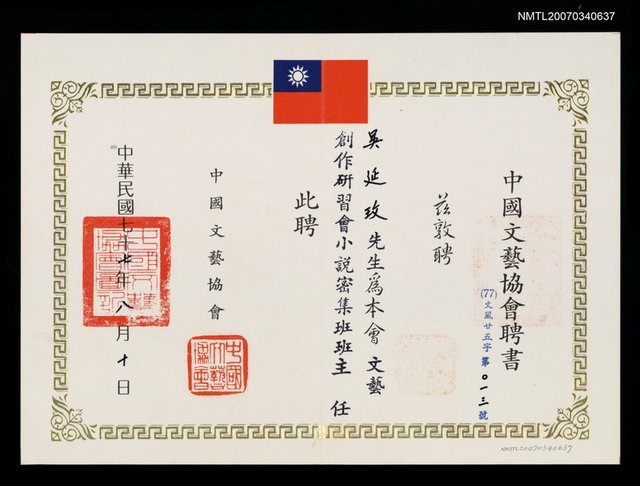 NMTL20070340637
中國文藝協會聘書
(77)文風廿五字第〇一三號
茲敦聘
吳延玫先生為本會文藝
創作研習會小說密集班班主任
此聘
中國文藝協會
中華民國七十七年八月十日
中國文藝協會
NMTL20070340637